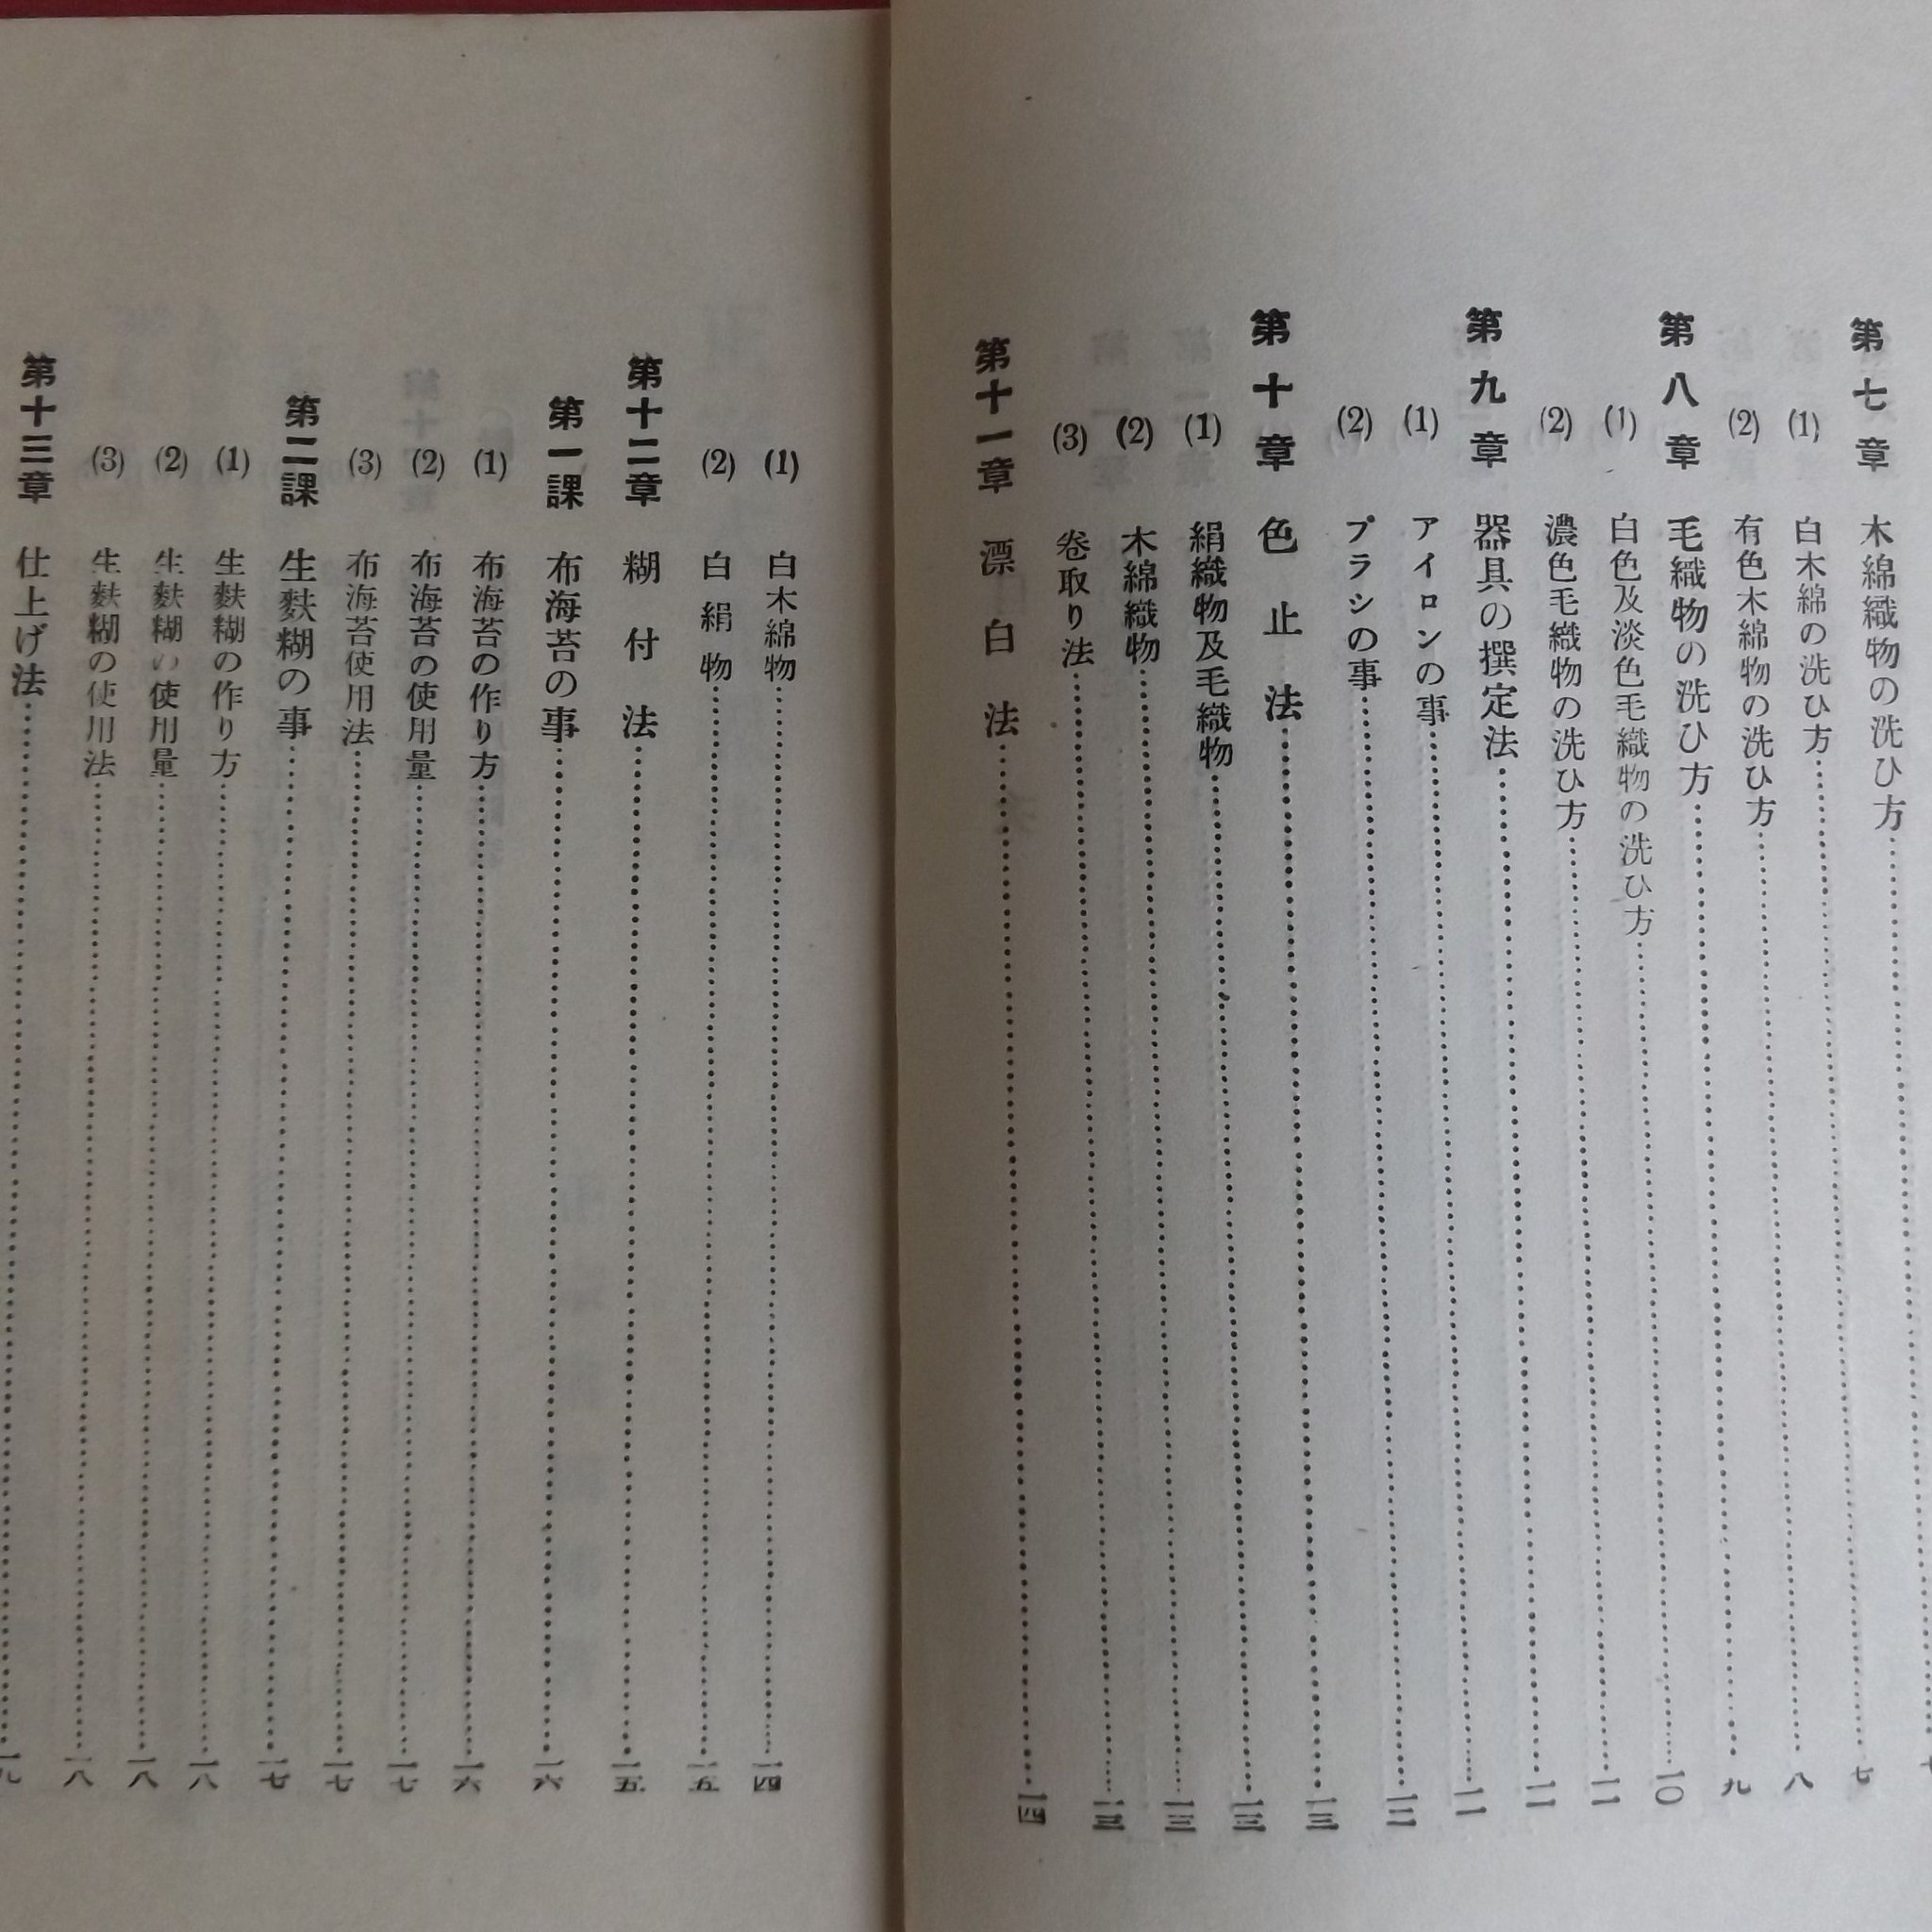 第七章 木綿織物の洗ひ方
(1) 白木綿の洗ひ方 七
(2) 有色木綿物の洗ひ方 八
第八章 毛織物の洗ひ方 九
(1) 白色及淡色毛織物の洗ひ方 一〇
(2) 濃色毛織物の洗ひ方 一一
第九章 器具の撰定法 一一
(1) アイロンの事 一一
(2) プラシの事 一二
第十章 色止法 一三
(1) 絹織物及毛織物 一三
(2) 木綿織物 一三
(3) 卷取り法 一三
第十一章 漂白法 一四
(1) 白木綿物 一四
(2) 白絹物 一五
第十二章 糊付法 一五
第一課 布海苔の事 一六
(1) 布海苔の作り方 一六
(2) 布海苔の使用量 一七
(3) 布海苔使用法 一七
第二課 生麩糊の事 一七
(1) 生麩糊の作り方 一八
(2) 生麩糊の使用量 一八
(3) 生麩糊の使用法 一八
第十三章 仕上げ法 一九